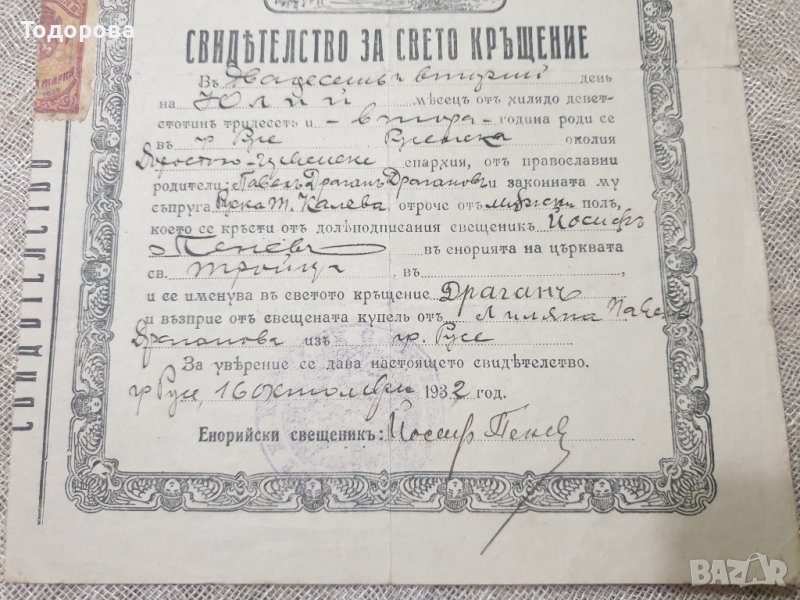 Тодорова
СВИДѢТЕЛСТВО ЗА СВЕТО КРЪЩЕНИЕ
Въ Двадесеть и вторий день
на Юлий мѣсецъ отъ хилядо девет-
стотинъ тридесетъ и - втора - година роди се
въ гр Русе Русенска околия
Доростоло-Червенска епархия, отъ православни
родители: Павелъ Драганъ Драгановъ и законната му
съпруга Руска Т. Калева отроче отъ мѫжски полъ,
което се кръсти отъ долѣподписания свещеникъ Йосифъ
Пеневъ въ енорията на църквата
св. Тройца въ ,
и се именува въ светото кръщение Драганъ
и възприе отъ свещената купель отъ Лиляна Павелъ
Драганова изъ гр. Русе
За увѣрение се дава настоящето свидѣтелство.
гр Русе, 16 октомври 1932 год.
Енорийски свещеникъ: Йосиф Пенев
СВИДѢТЕЛСТВО
BAZAR